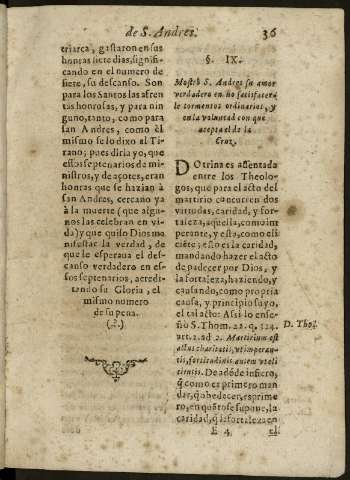 de S. Andres.
36
triarca, gastaron en sus
honras siete dias, signifi-
cando en el numero de
siete, su descanso. Son
para los Santos las afren
tas honrosas, y para nin
guno, tanto, como para
san Andres, como èl
mismo se lo dixo al Ti-
rano; pues diria yo, que
essos septenarios de mi-
nistros, y de açotes, eran
honras que se hazian à
san Andres, cercano ya
à la muerte (que algu-
nos las celebran en vi-
da) y que quiso Dios ma
nifestar la verdad, de
que le esperaua el des-
canso verdadero en es-
sos septenarios, acredi-
tando su Gloria, el
mismo numero
de su pena.
§. IX.
Mostrò S. Andres su amor
verdadero en no satisfacer à
le tormentos ordinarios, y
en la voluntad con que
acepta el de la
Cruz.
DOtrina es assentada
entre los Theolo-
gos, que para el acto del
martirio concurren dos
virtudes, caridad, y for-
taleza, aquella, como im
perante, y esta, como eli
ciête; esto es la caridad,
mandando hazer el acto
de padecer por Dios, y
la fortaleza, haziendo, y
causando, como propria
causa, y principio suyo,
el tal acto: Assi lo ense-
ñò S. Thom. 22. q. 124.
art. 2. ad 2. Martirium est
actus charitatis, vt imperan-
tis, fortitudinis autem vt eli
cientis. De adõde infiero,
q̃ como es primero man
dar, q̃ obedecer, es prime
ro, en quãto se supone, la
caridad, q̃ la fortaleza en
D. Tho.
E 4
el